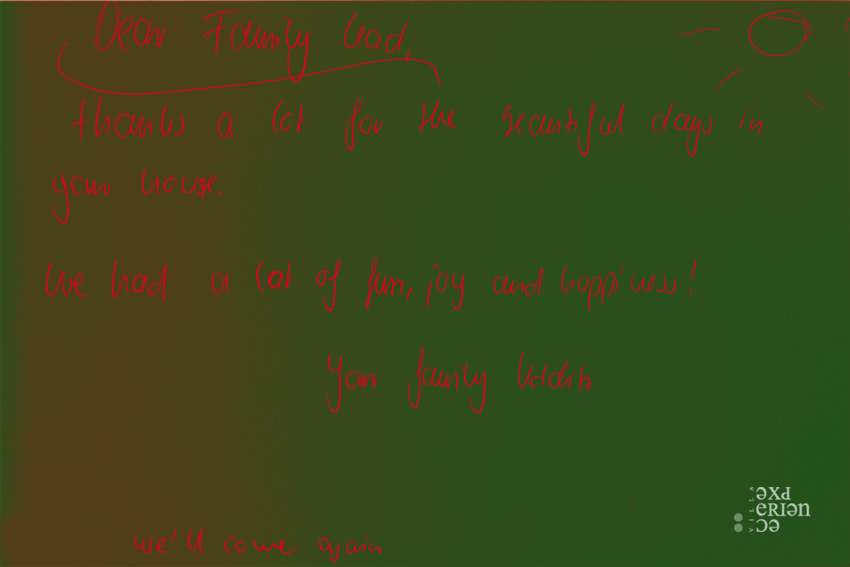 Dear Family
thanks a lot for the beautiful days in
your house.
We had a lot of fun, joy and happiness!
Your family
we'll come again
VILLA
exp
erien
ce